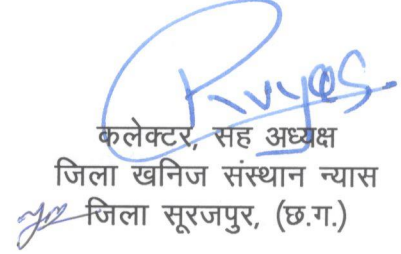 कलेक्टर, सह अध्यक्ष
जिला खनिज संस्थान न्यास
जिला सूरजपुर, (छ.ग.)